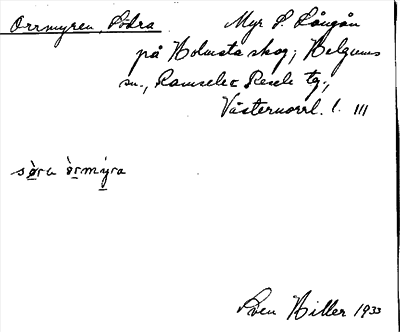 Orrmyren, Södra Myr S. Långån
på Holmsta skog; Helgums
sn., Ramsele o Resele tg.,
Västernorrl. l. III
sø̀ra òrmýra
Sven Hiller 1933